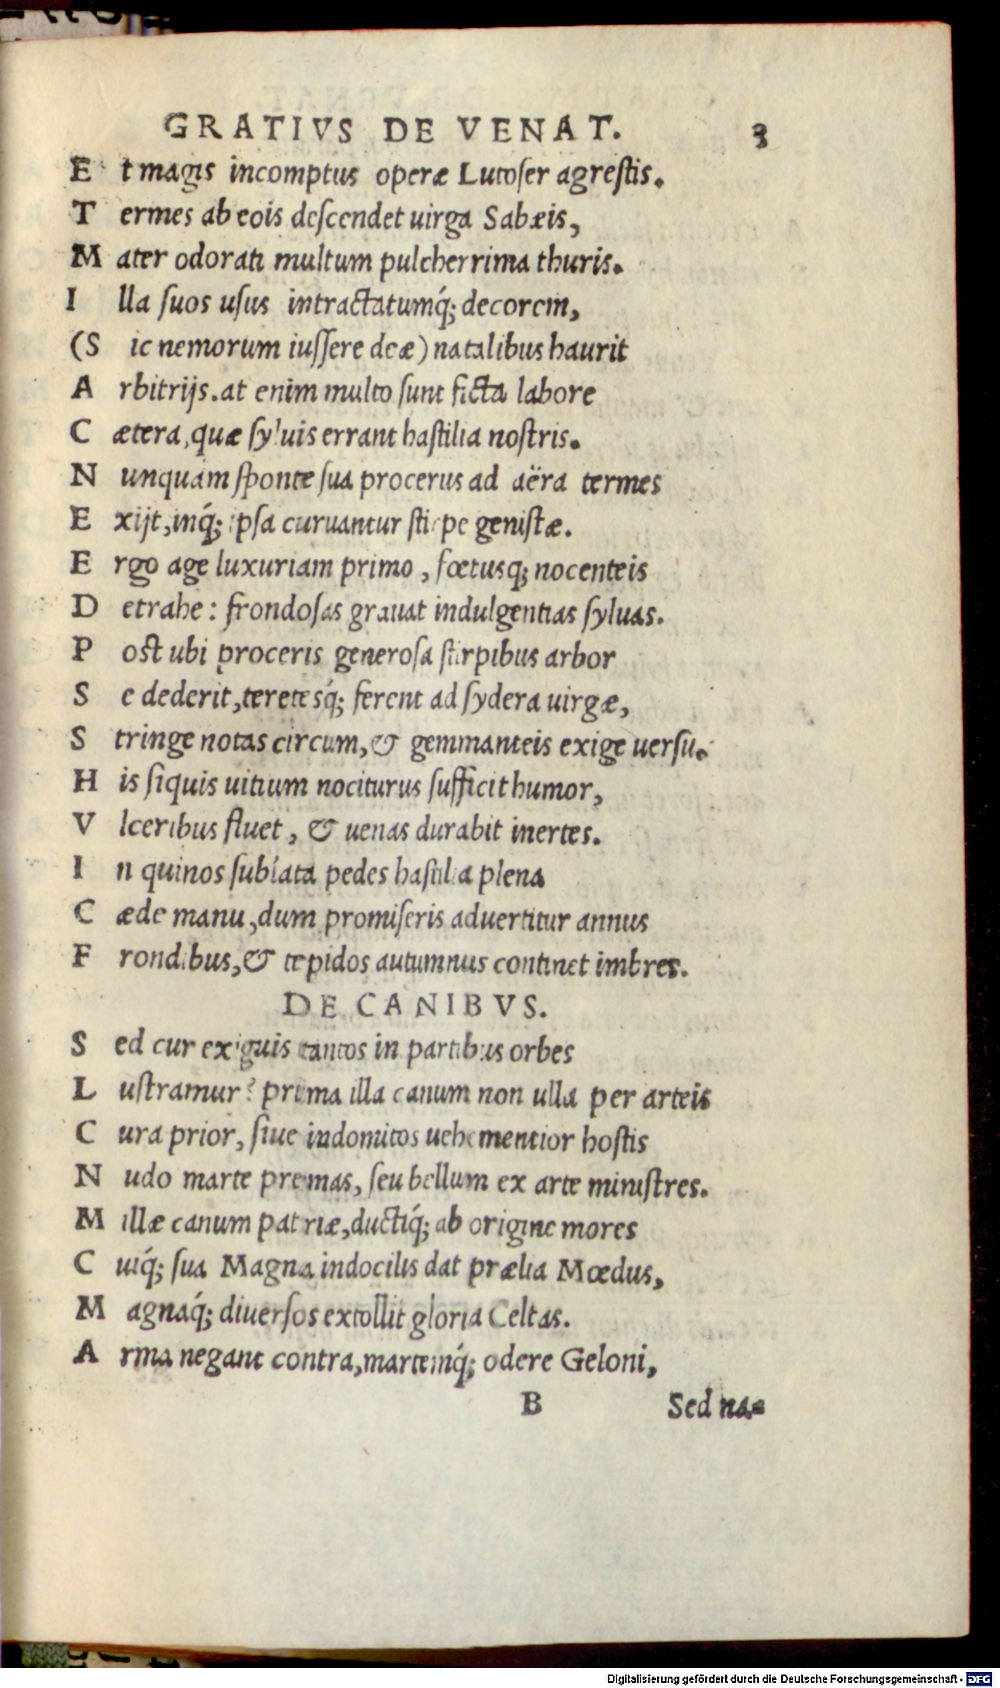 GRATIVS DE VENAT. 3
E t magis incomptus operæ Lutoſer agreſtis.
T ermes ab eois deſcendet uirga Sabæis,
M ater odorati multum pulcherrima thuris.
I lla ſuos uſus intractatumq́; decorem,
(S ic nemorum iuſſere deæ) natalibus haurit
A rbitrijs. at enim multo ſunt ficta labore
C ætera, quæ ſyluis errant haſtilia noſtris.
N unquam ſponte ſua procerus ad aëra termes
E xijt, inq́; ipſa curuantur ſtirpe geniſtæ.
E rgo age luxuriam primo, fœtusq; nocenteis
D etrahe: frondoſas grauat indulgentias ſyluas.
P oſt ubi proceris generoſa ſtirpibus arbor
S e dederit, teretesq́; ferent ad ſydera uirgæ,
S tringe notas circum, & gemmanteis exige uerſu.
H is ſiquis uitium nociturus ſufficit humor,
V lceribus fluet, & uenas durabit inertes.
I n quinos ſublata pedes haſtilia plena
C æde manu, dum promiſeris aduertitur annus
F rondibus, & tepidos autumnus continet imbres.
DE CANIBVS.
S ed cur exiguis tantos in partibus orbes
L uſtramur? prima illa canum non ulla per arteis
C ura prior, ſiue indomitos uehementior hoſtis
N udo marte premas, ſeu bellum ex arte miniſtres.
M illæ canum patriæ, ductiq́; ab origine mores
C uiq́; ſua Magna indocilis dat prælia Mœdus,
M agnaq́; diuerſos extollit gloria Celtas.
A rma negant contra, martemq́; odere Geloni,
B Sed na-
Digitalisierung gefördert durch die Deutsche Forschungsgemeinschaft - DFG